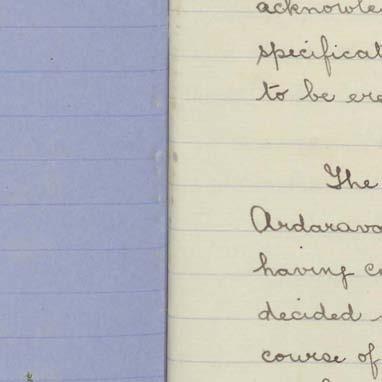 acknowle
specificat
to be ere
The
Ardarava
having c
decided
course of